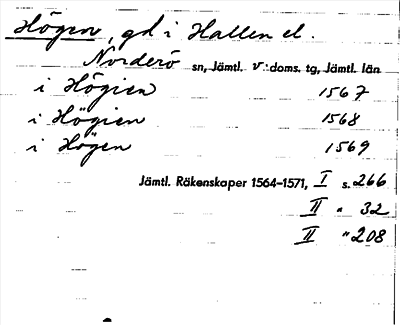 Högen, gd i Hallen el.
Norderö sn, Jämtl. v:doms. tg, Jämtl. län
i Högien 1567
i Högien 1568
i Högen 1569
Jämtl. Räkenskaper 1564-1571, I s. 266
II " 32
II " 208